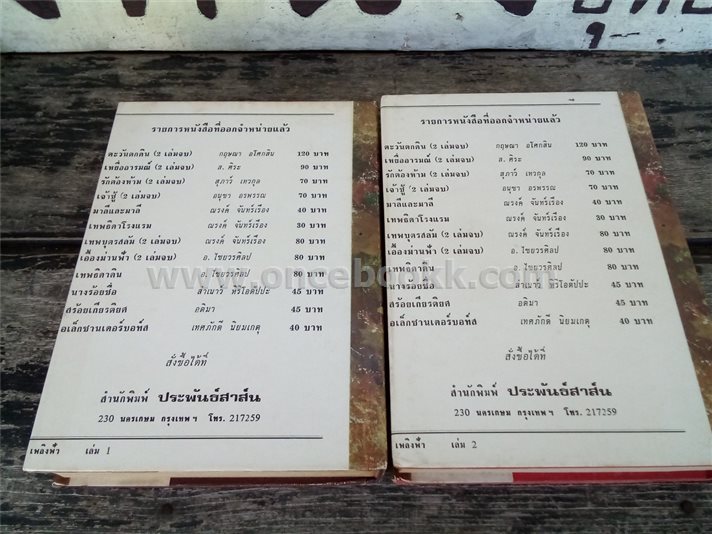 รายการหนังสือที่ออกจำหน่ายแล้ว
ตะวันตกดิน (2 เล่มจบ) กฤษณา อโศกสิน 120 บาท
เหยื่ออารมณ์ (2 เล่มจบ) ส. ศิระ 90 บาท
รักต้องห้าม (2 เล่มจบ) สุภาวี เทวกุล 70 บาท
เจ้าชู้ (2 เล่มจบ) อนุชา อรพรรณ 70 บาท
มาลีและมาลี ณรงค์ จันทร์เรือง 40 บาท
เทพธิดาโรงแรม ณรงค์ จันทร์เรือง 30 บาท
เทพบุตรสลัม (2 เล่มจบ) ณรงค์ จันทร์เรือง 80 บาท
เอื้องม่านฟ้า (2 เล่มจบ) อ. ไชยวรศิลป 80 บาท
เทพธิดาดิน อ. ไชยวรศิลป 80 บาท
นางร้อยชื่อ สำเนาว์ หิริโอตัปปะ 45 บาท
สร้อยเกียรติยศ อติมา 45 บาท
อเล็กซานเดอร์บอท์ส เทศภักดี นิยมเกตุ 40 บาท
สั่งซื้อได้ที่
สำนักพิมพ์ ประพันธ์สาส์น
230 นครเกษม กรุงเทพ ฯ โทร. 217259
เพลิงฟ้า เล่ม 1
รายการหนังสือที่ออกจำหน่ายแล้ว
ตะวันตกดิน (2 เล่มจบ) กฤษณา อโศกสิน 120 บาท
เหยื่ออารมณ์ (2 เล่มจบ) ส. ศิระ 90 บาท
รักต้องห้าม (2 เล่มจบ) สุภาวี เทวกุล 70 บาท
เจ้าชู้ (2 เล่มจบ) อนุชา อรพรรณ 70 บาท
มาลีและมาลี ณรงค์ จันทร์เรือง 40 บาท
เทพธิดาโรงแรม ณรงค์ จันทร์เรือง 30 บาท
เทพบุตรสลัม (2 เล่มจบ) ณรงค์ จันทร์เรือง 80 บาท
เอื้องม่านฟ้า (2 เล่มจบ) อ. ไชยวรศิลป 80 บาท
เทพธิดาดิน อ. ไชยวรศิลป 80 บาท
นางร้อยชื่อ สำเนาว์ หิริโอตัปปะ 45 บาท
สร้อยเกียรติยศ อติมา 45 บาท
อเล็กซานเดอร์บอท์ส เทศภักดี นิยมเกตุ 40 บาท
สั่งซื้อได้ที่
สำนักพิมพ์ ประพันธ์สาส์น
230 นครเกษม กรุงเทพ ฯ โทร. 217259
เพลิงฟ้า เล่ม 2
www.oncebookk.com